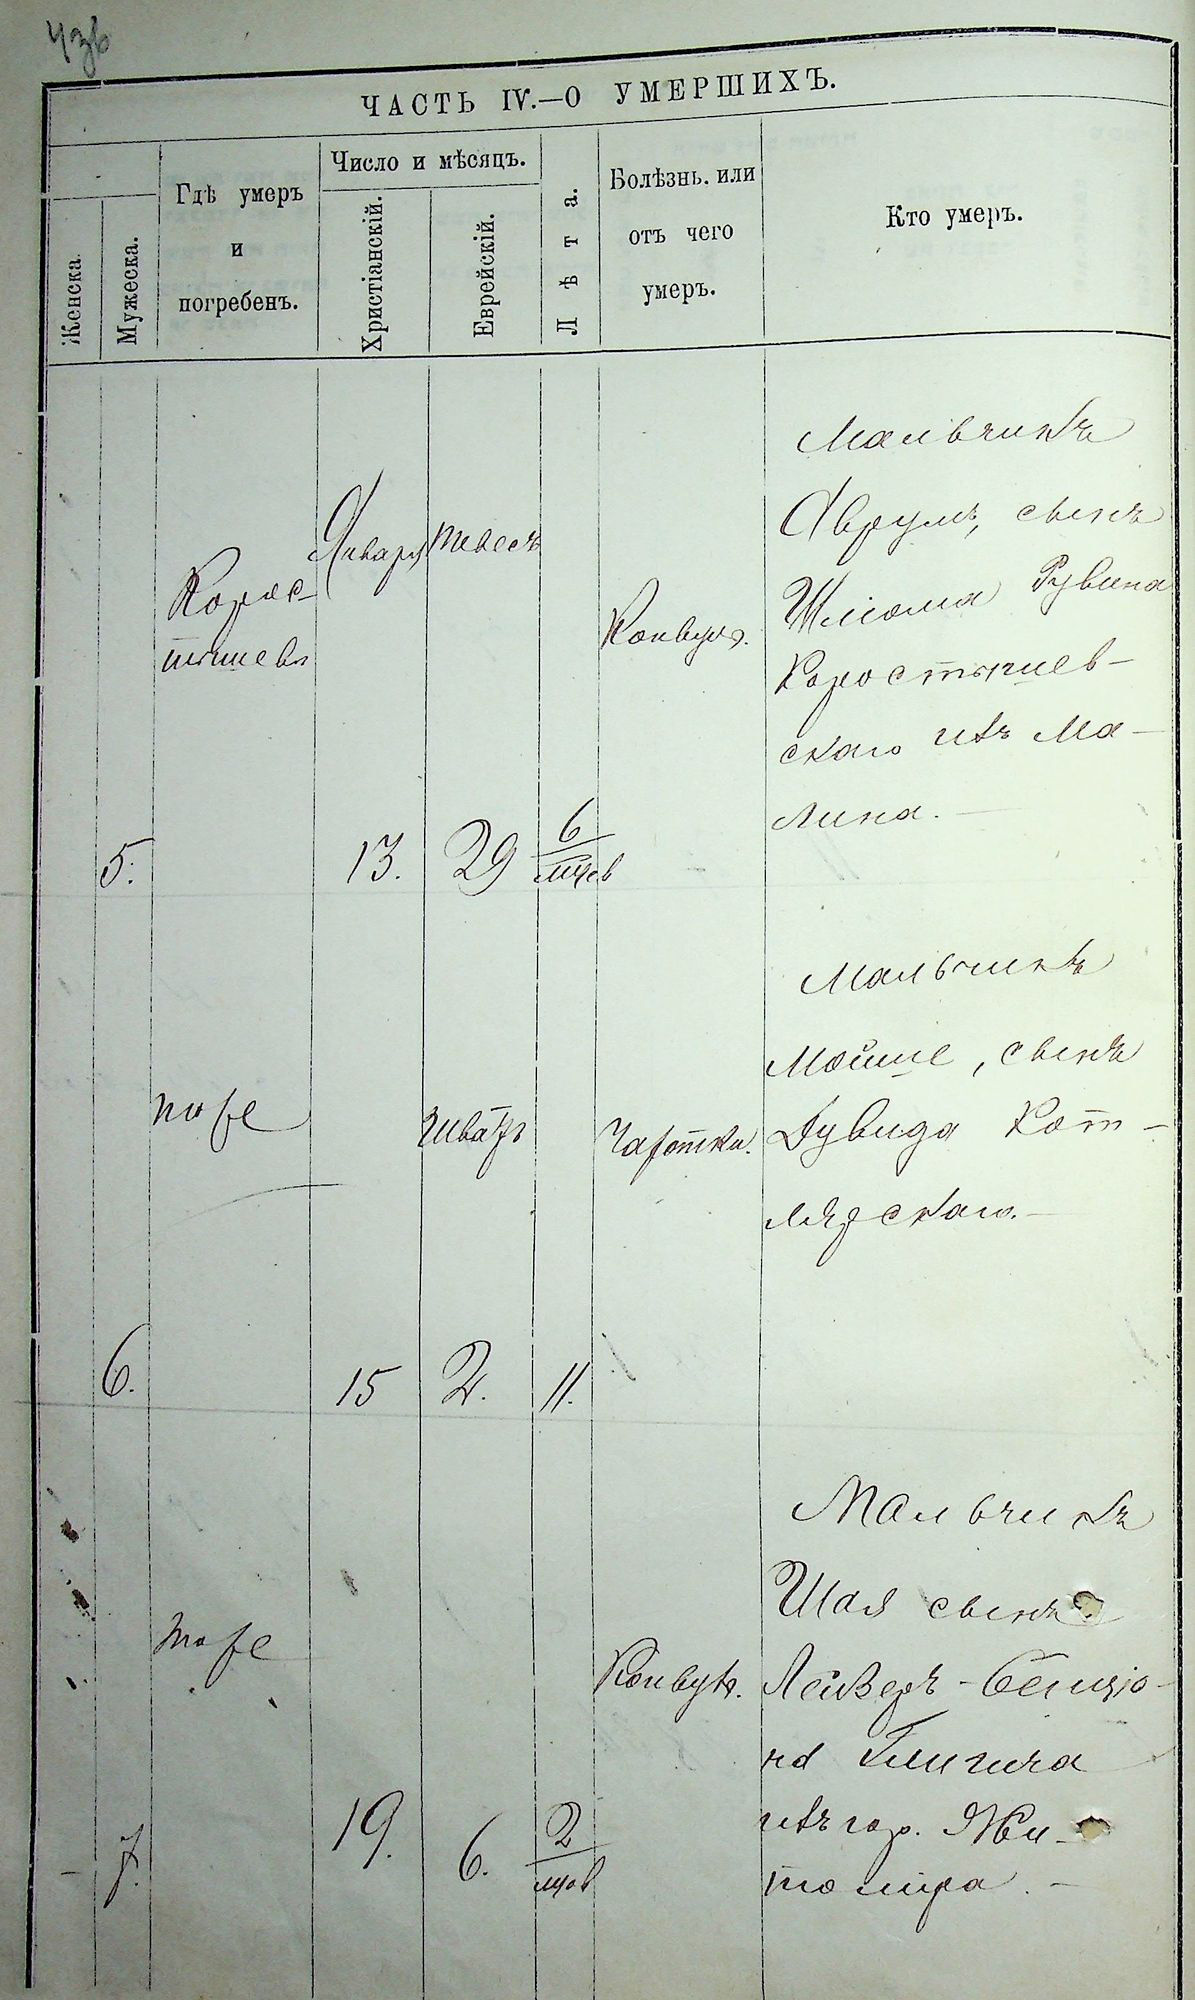 ЧАСТЬ IV.—О УМЕРШИХЪ.
Женска.
Мужеска.
Гдѣ умеръ
и
погребенъ.
Число и мѣсяцъ.
Христіанскій.
Еврейскій.
Лѣта.
Болѣзнь. или
отъ чего
умеръ.
Кто умеръ.
5.
Корос-
тишевъ
Января
13.
Тевесъ
29
6
мцев
Конвул.
Мальчикъ
Аврумъ, сынъ
Шліома Рувина
Коростышев-
скаго изъ Ма-
лина.-
6.
тоже
15
Шватъ
2.
11.
Чахотки.
Мальчикъ
Мойше, сынъ
Дувида Кот-
лярскаго.-
7.
тоже
19.
6.
2
мцов
Конвул.
Мальчикъ
Шая сынъ
Лейзеръ-Бенціо-
на
изъ гор. Жи-
томира.-